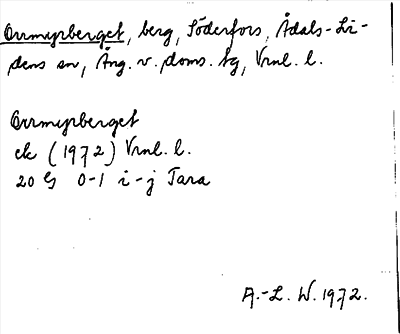 Orrmyrberget, berg, Söderfors, Ådals-Li-
dens sn, Ång. v. doms. tg, Vrnl. l.
Orrmyrberget
ek (1972) Vrnl. l.
20 G 0-1 i-j Tara
A.-L. W. 1972.